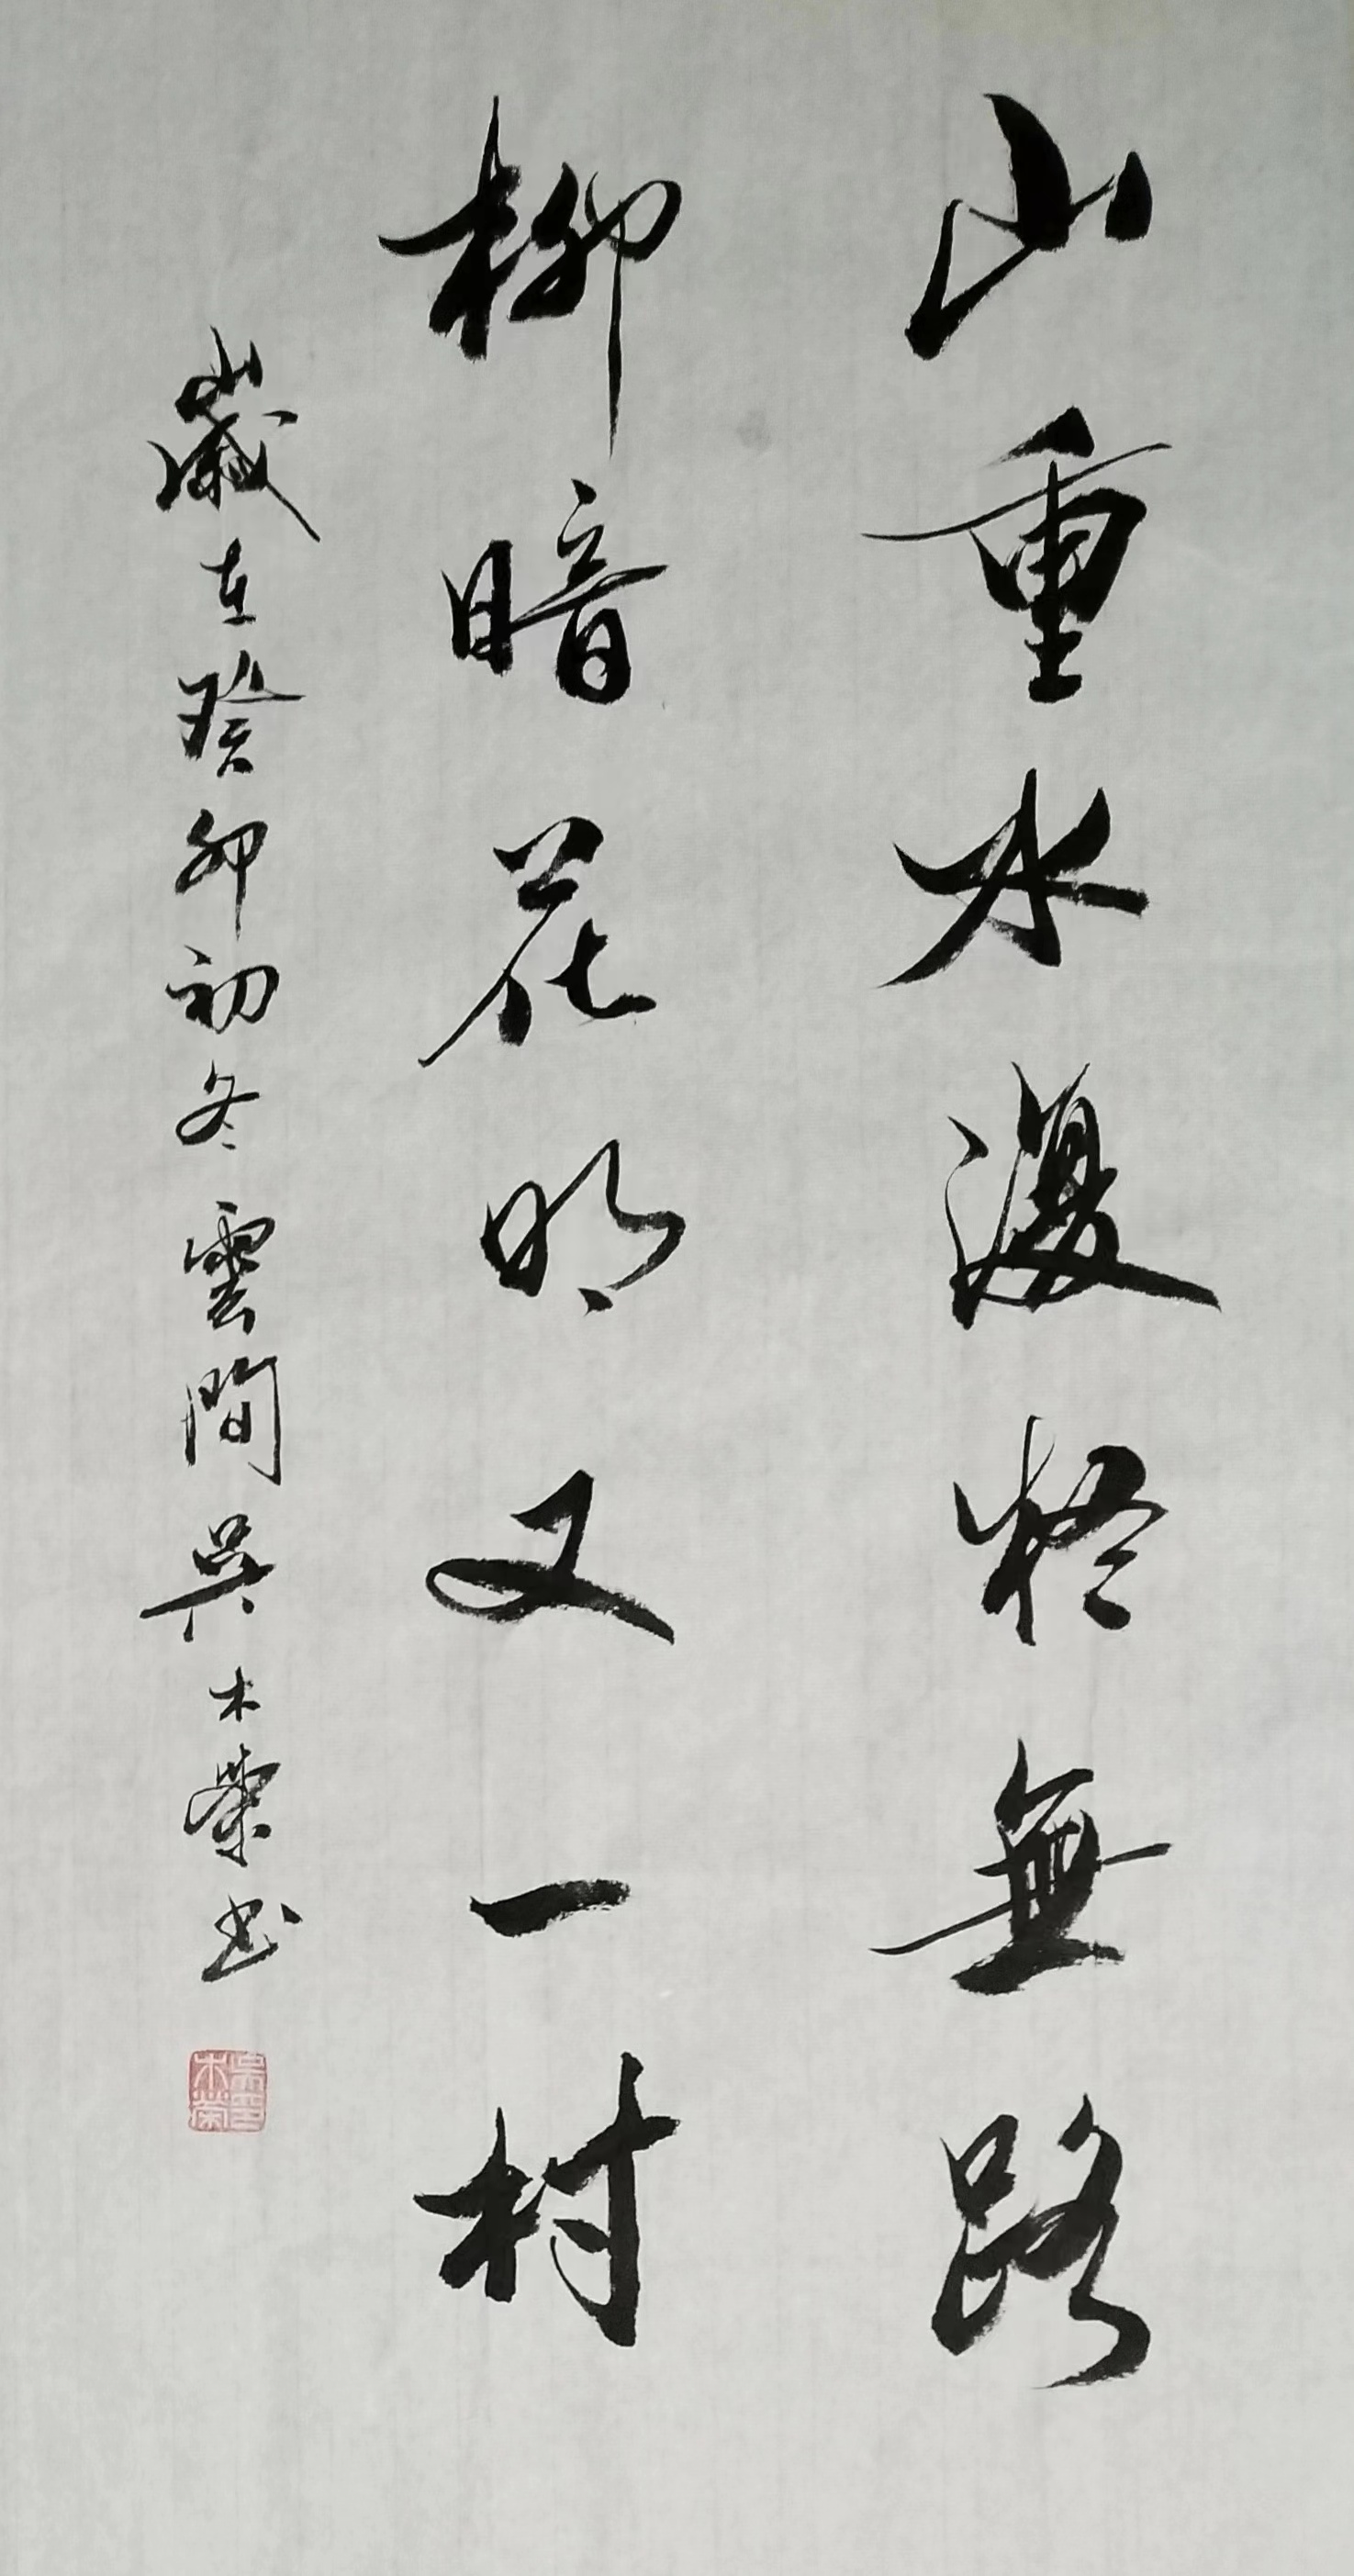 山重水復疑無路
柳暗花明又一村
歲在癸卯初冬雲間吳木榮书
吳印木榮